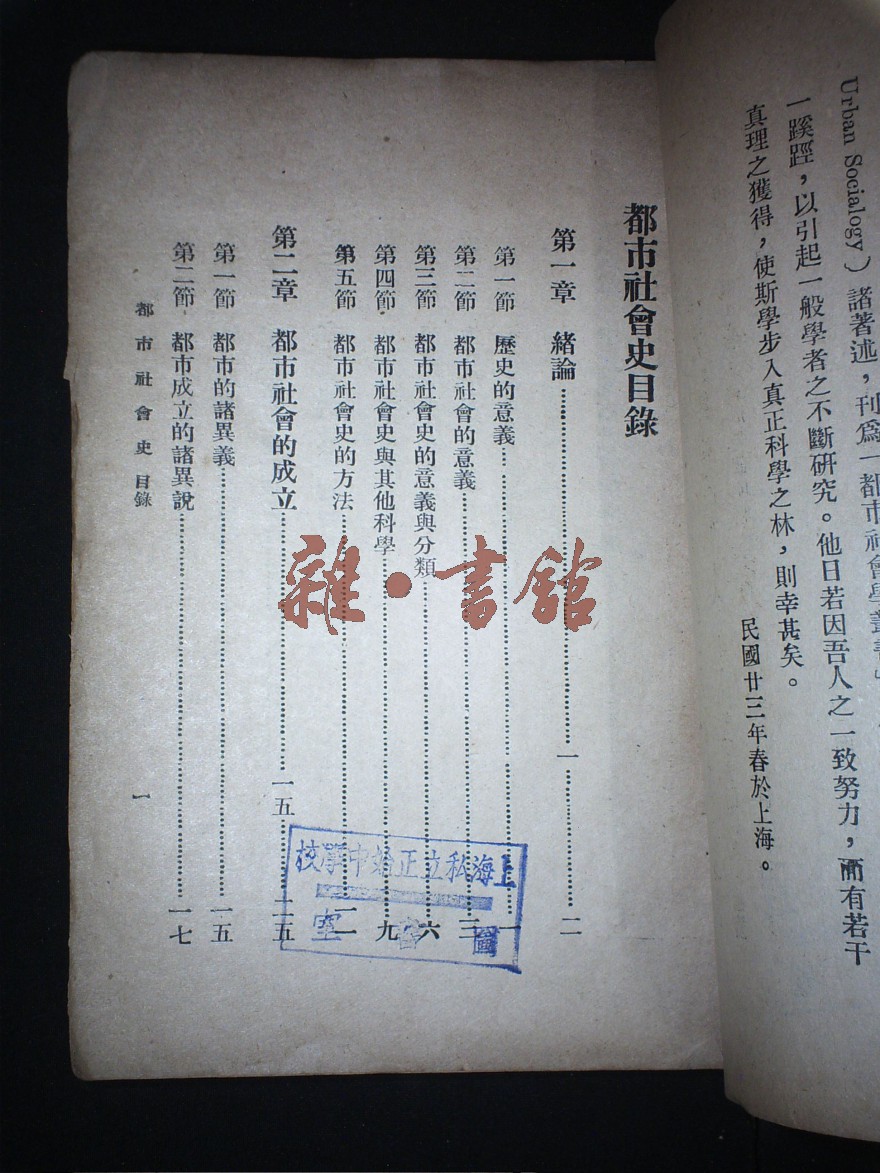 Urban Socialogy）諸著述，刊爲「都市社會學叢書」
一蹊踁，以引起一般學者之不斷研究。他日若因吾人之一致努力，而有若干
真理之獲得，使斯學步入真正科學之林，則幸甚矣。
民國廿三年春於上海。
都市社會史目錄
第一章　緒論……一……二
第一節　歷史的意義……一
第二節　都市社會的意義……三
第三節　都市社會史的意義與分類……六
第四節　都市社會史與其他科學……九
第五節　都市社會史的方法……一一
第二章　都市社會的成立……一五……二五
第一節　都市的諸異義……一五
第二節　都市成立的諸異說……一七
都市社會史　目錄
一
上海私立正始中學校
圖書室
雜·書館